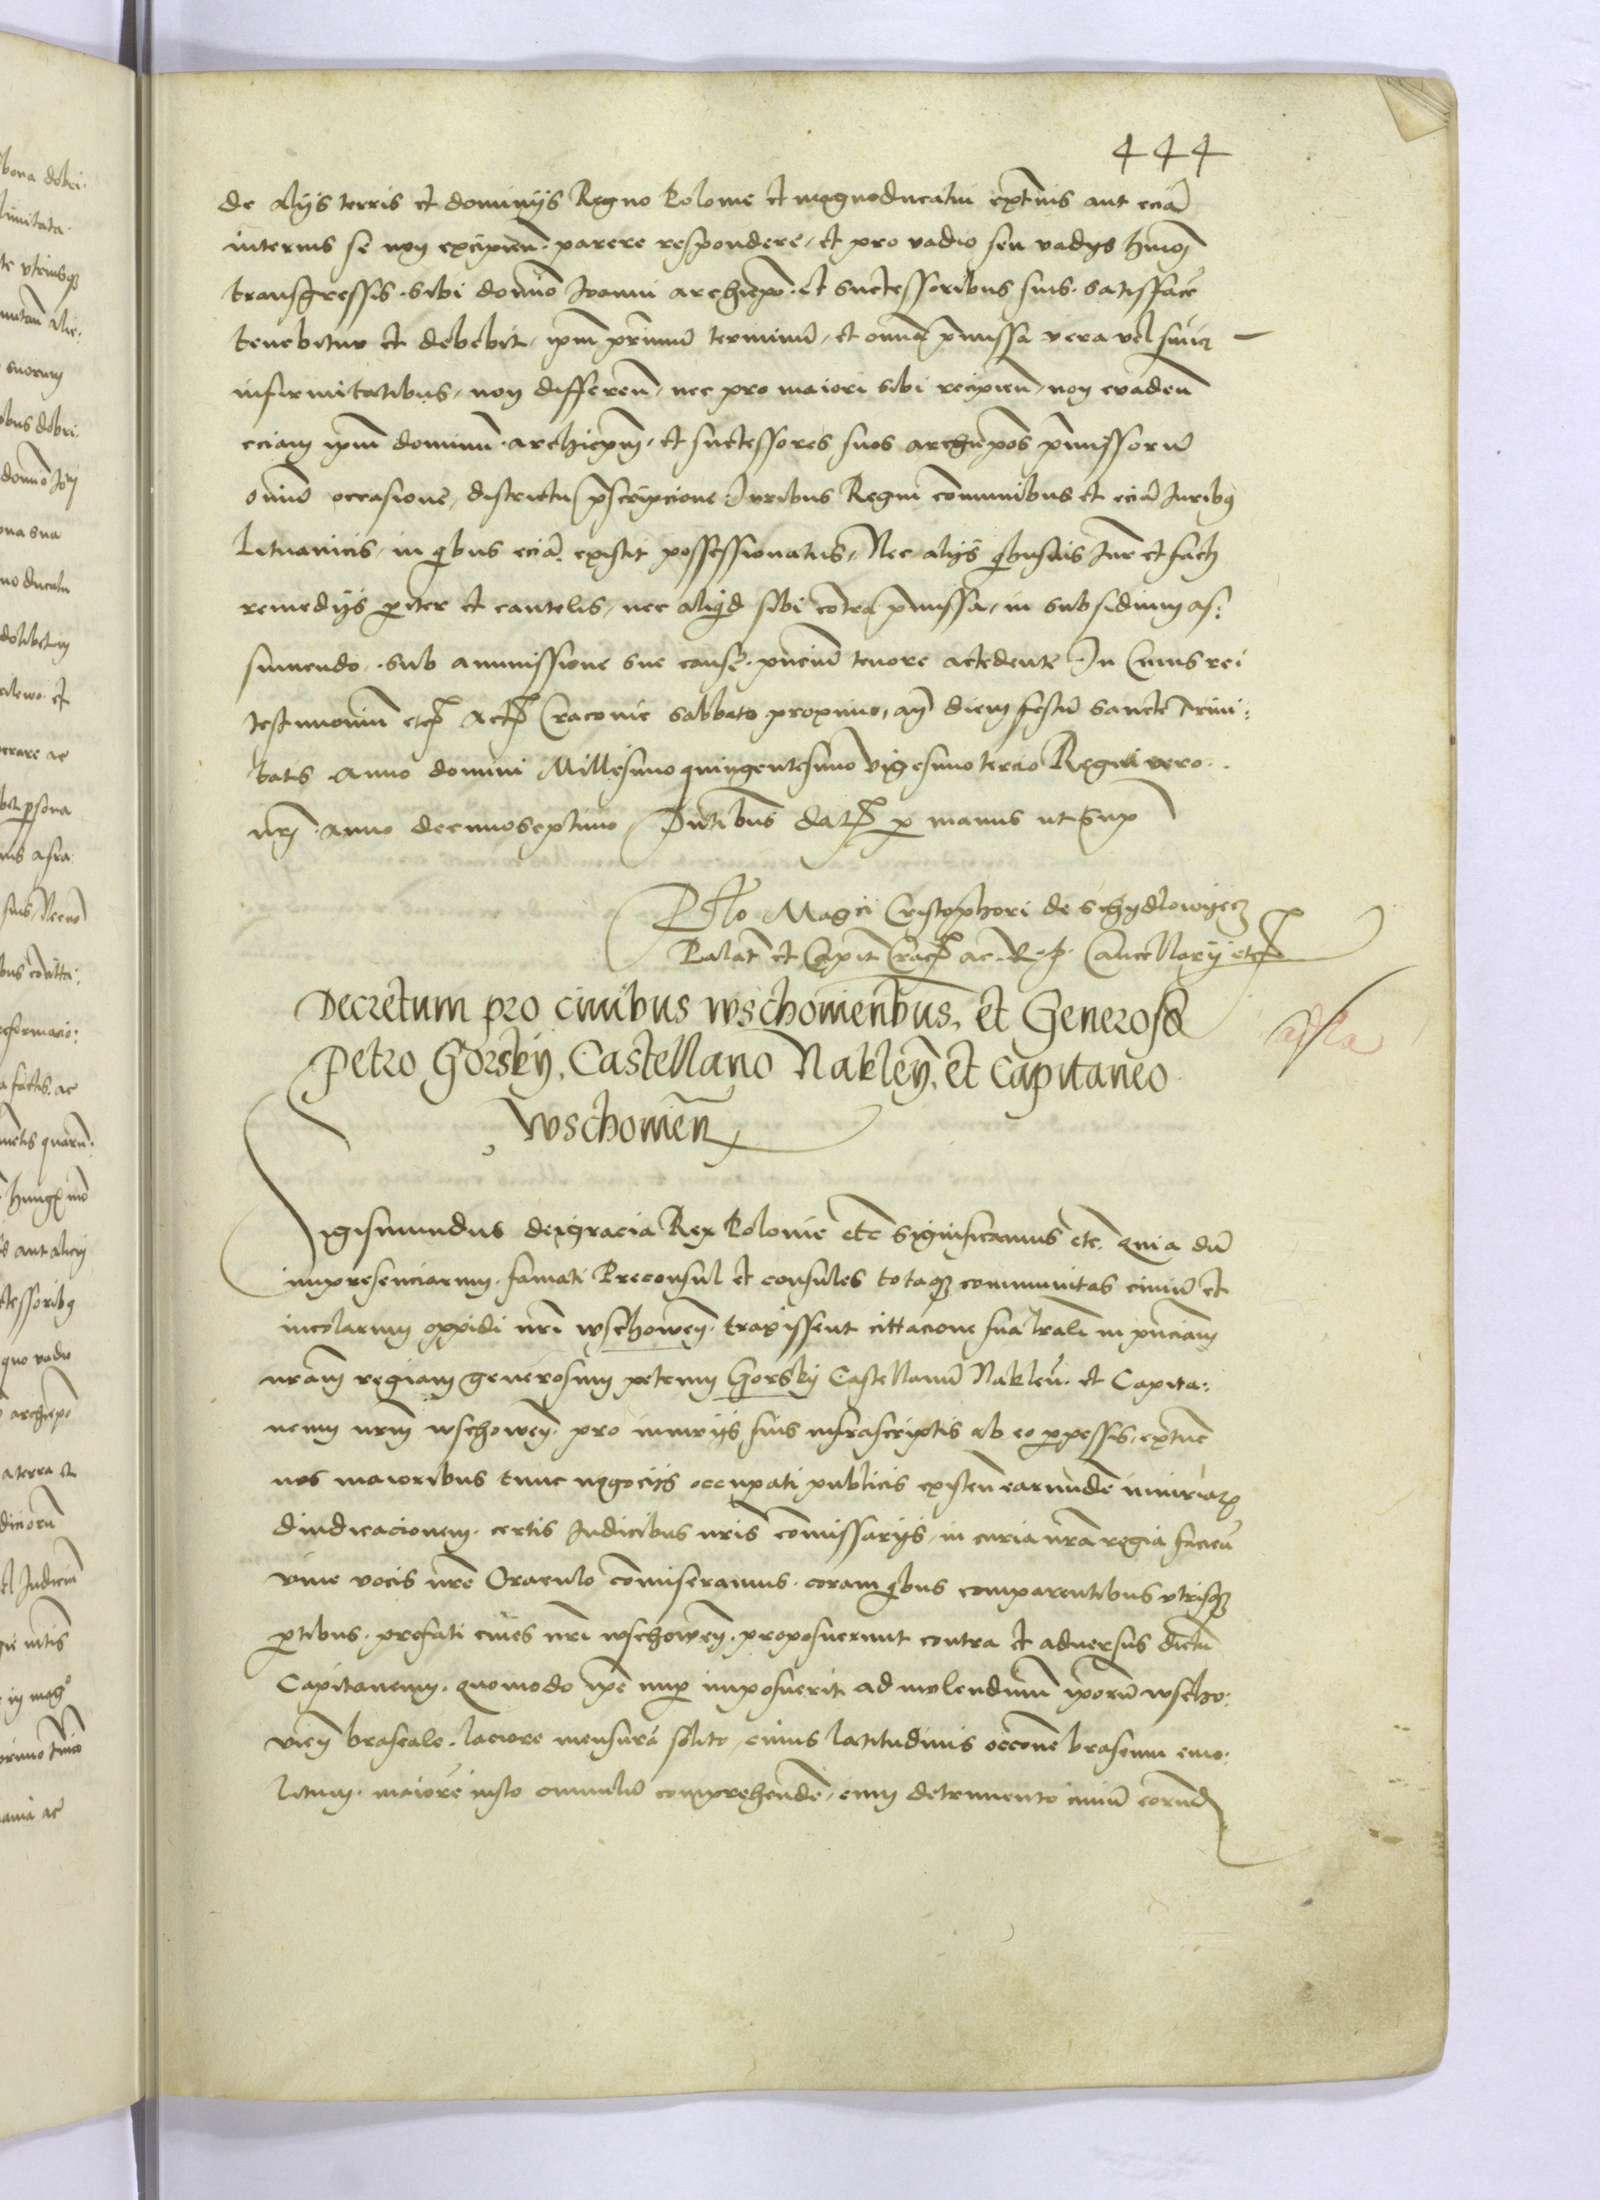 444
de alijs terris et dominijs Regno Polonie et magnoducatui exĩnis aut eciã
internis se non excipieñ. parere respondere, et pro vadio seu vadijs hmoi
transgressis. sibi domio Ioanni archiepo. et successoribus suis. satisfacẽ
tenebitur et debebit, ipm primũ terminũ, et omia pmissa vera vel simĩ
infirmitatibus, non differeñ, nec pro maiori sibi recipieñ, non evadeñ
eciam ipm dominũ. archiepm, et successores suos archiepos pmissorũ
omiũ occasione, districtu pscripcione Iuribus Regni communibus et eciã Iuribq
Lituanicis, in qbus eciã existit possessionatus, Nec alijs qbusuis Iur et facti
remedijs pter et cautelis, nec aliqd sibi contra pmissa, in subsidium as:
sumendo, sub amissione sue cause. pnciũ tenore accedente In Cuius rei
testimonium etc Act Cracovie sabbato proximo, añ diem festũ sancte Trini:
tatis Anno domini Millesimo quingentesimo vigesimo tercio Regni vero
nri. anno decimoseptimo Pntibus dat p manus ut sup
Rlo Magci Cristophori de Schydlowyecz
Palat et Capit Crac ac R. P. Cancellarij etc
Decretum pro civibus wschovienbus, et Generoso
Petro Gorsky, Castellano Nakleñ, et Capitaneo
wschovieñ
Sigismundus dei gracia Rex Polonie etc Significamus etc. Quia dũ
impresenciarum. famati Preconsul et consules totaq communitas civiũ et
incolarum oppidi nri wschoweñ. traxissent cittacione sua lrali in pnciam
nram regiam generosum petrum Gorsky Castellanũ Nakleñ. et Capita:
neum nrm wschoweñ. pro iniurijs suis infrascriptis ab eo ppessis, extunc
nos maioribus tunc negocijs occupati publicis existeñ earundẽ iniuriarꝝ
diiudicacionem. certis Iudicibus nris comissarijs, in curia nra regia facieñ
vive vocis nre Oraculo comiseramus. coram qbus comparentibus vtrisq
ptibus. prefati cives nri wschoweñ. proposuerunt contra et adversus dictũ
Capitaneum. quomodo ipe nup imposuerit ad molendinũ iporũ wscho:
vieñ braseale. laciore mensura solito, cuius latitudinis occone braseum emo:
litum. maiorẽ iusto cumulũ comprehendẽ, cum detrimento civiũ eorund